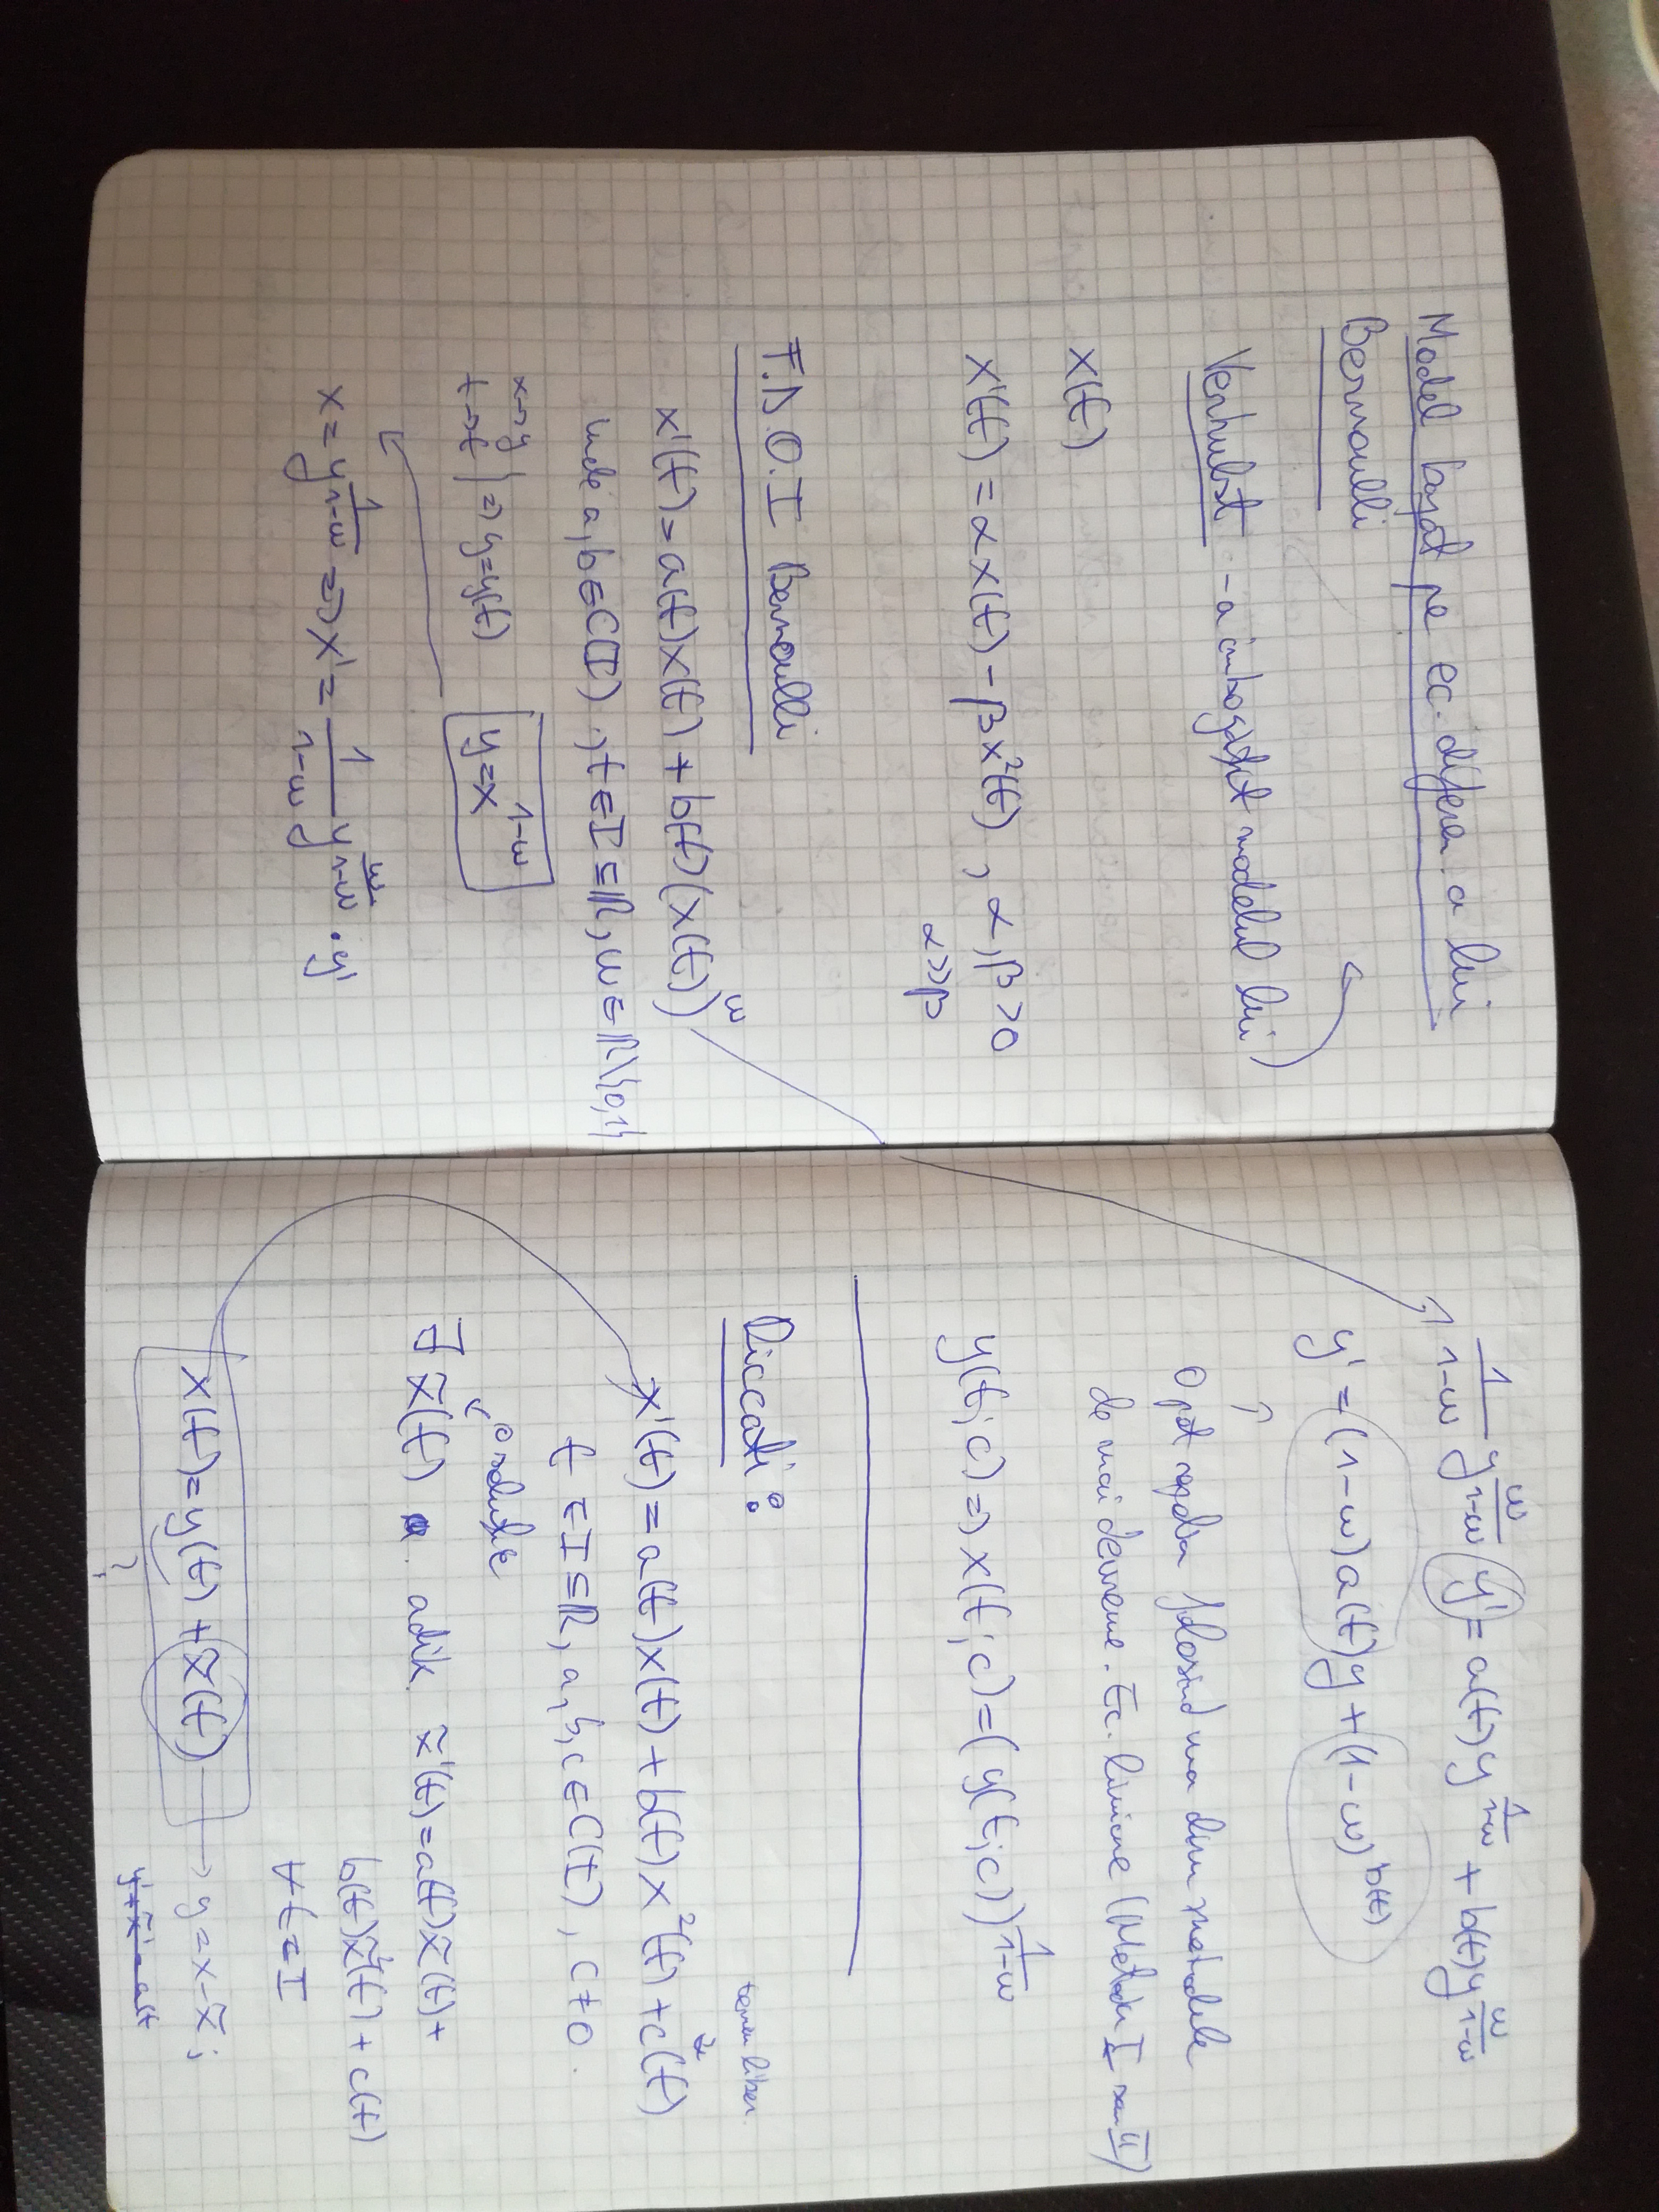 Model bazat pe ec. diferen. a lui
Bernoulli
Verhulst - a îmbogățit modelul lui
x(t)
x'(t) = αx(t) - βx²(t) , α, β > 0
α >> β
F.D.O.I Bernoulli
x'(t) = a(t)x(t) + b(t)(x(t))^ω
unde a, b ∈ C(I) , t ∈ I ⊆ ℝ, ω ∈ ℝ\{0,1}
x → y
t → t | ⇒ y = y(t)
y = x^(1-ω)
x = y^(1/(1-ω)) ⇒ x' = 1/(1-ω) y^(ω/(1-ω)) · y'
1/(1-ω) y^(ω/(1-ω)) y' = a(t) y^(1/(1-ω)) + b(t) y^(ω/(1-ω))
y' = (1-ω)a(t)y + (1-ω) b(t)
o pot rezolva folosind una din metodele
de mai devreme. Ec. liniare (Metoda I sau II)
y(t; c) ⇒ x(t; c) = (y(t; c))^(1/(1-ω))
Riccati:
termen liber.
x'(t) = a(t)x(t) + b(t)x²(t) + c(t)
t ∈ I ⊆ ℝ, a, b, c ∈ C(I), c ≠ 0.
o soluție
∃ x̃(t) a. adik. x̃'(t) = a(t)x̃(t) +
b(t)x̃²(t) + c(t)
∀ t ∈ I
x(t) = y(t) + x̃(t) → y = x - x̃ ;
?
y' + x̃' = a(t